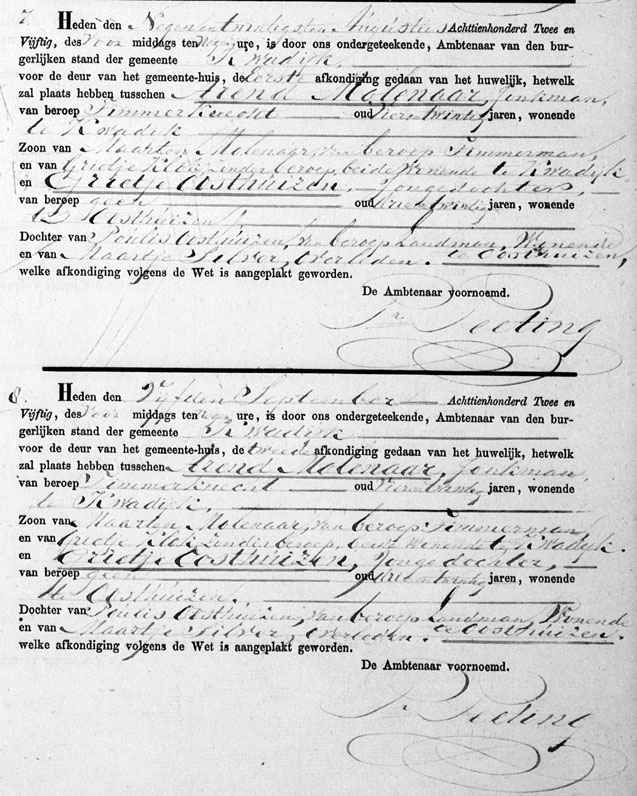 7. Heden den Negenentwintigsten Augustus Achttienhonderd Twee en
Vijftig, des Voor middags ten Negen ure, is door ons ondergeteekende, Ambtenaar van den bur-
gerlijken stand der gemeente Kwadijk
voor de deur van het gemeente-huis, de eerste afkondiging gedaan van het huwelijk, hetwelk
zal plaats hebben tusschen Arend Molenaar, Jonkman,
van beroep Timmerknecht oud Vierentwintig jaren, wonende
te Kwadijk
Zoon van Maarten Molenaar, van beroep Timmerman,
en van Grietje Klok, zonder beroep, beide Wonende te Kwadijk
en Grietje Oosthuizen, Jongedochter,
van beroep geen oud jaren, wonende
te Oosthuizen
Dochter van Poulis Oosthuizen, van beroep Landman, Wonende
en van Maartje Silver, Overleden. te Oosthuizen,
welke afkondiging volgens de Wet is aangeplakt geworden.
De Ambtenaar voornoemd.
Pr Peeting
8. Heden den Vijfden September Achttienhonderd Twee en
Vijftig, des Voor middags ten Negen ure, is door ons ondergeteekende, Ambtenaar van den bur-
gerlijken stand der gemeente Kwadijk
voor de deur van het gemeente-huis, de tweede afkondiging gedaan van het huwelijk, hetwelk
zal plaats hebben tusschen Arend Molenaar, Jonkman,
van beroep Timmerknecht oud Vierentwintig jaren, wonende
te Kwadijk,
Zoon van Maarten Molenaar, van beroep Timmerman,
en van Grietje Klok, zonder beroep, beide Wonende te Kwadijk.
en Grietje Oosthuizen, Jongedochter,
van beroep geen oud jaren, wonende
te Oosthuizen.
Dochter van Poulis Oosthuizen, van beroep Landman, Wonende
en van Maartje Silver, Overleden. te Oosthuizen.
welke afkondiging volgens de Wet is aangeplakt geworden.
De Ambtenaar voornoemd.
Pr Peeting